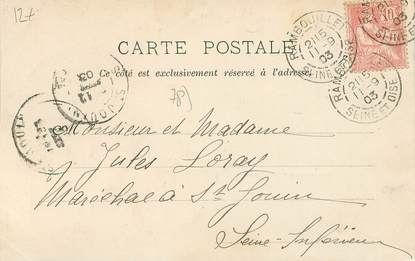 12+
CARTE POSTALE
Ce côté est exclusivement réservé à l'adresse
RAMBOUILLET
21 15
11 -9
03
SEINE ET OISE
RAMBOUILLET
21 15
11 -9
03
SEINE ET OISE
10
ST JOUIN
12
03
Monsieur et Madame
Jules Loray
Maréchal à St Jouin
Seine-Inférieure